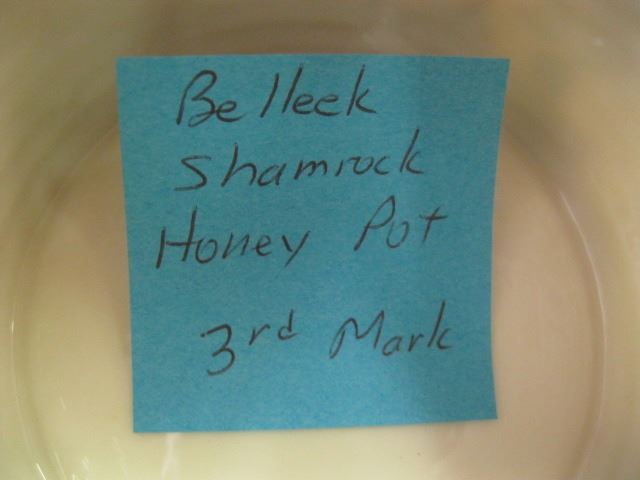 Belleek
Shamrock
Honey Pot
3rd Mark